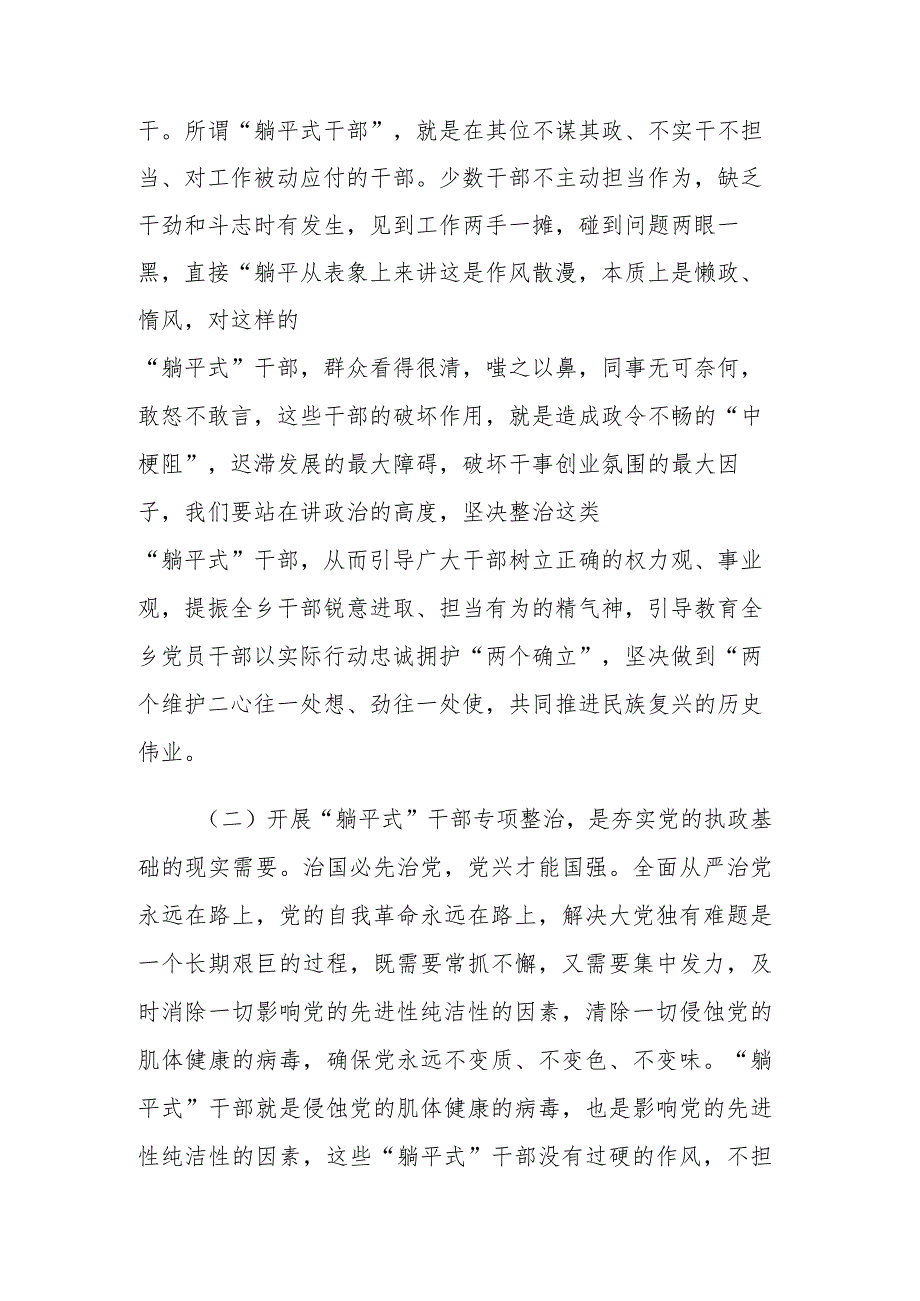 干。所谓“躺平式干部”，就是在其位不谋其政、不实干不担
当、对工作被动应付的干部。少数干部不主动担当作为，缺乏
干劲和斗志时有发生，见到工作两手一摊，碰到问题两眼一
黑，直接“躺平从表象上来讲这是作风散漫，本质上是懒政、
惰风，对这样的
“躺平式”干部，群众看得很清，嗤之以鼻，同事无可奈何，
敢怒不敢言，这些干部的破坏作用，就是造成政令不畅的“中
梗阻”，迟滞发展的最大障碍，破坏干事创业氛围的最大因
子，我们要站在讲政治的高度，坚决整治这类
“躺平式”干部，从而引导广大干部树立正确的权力观、事业
观，提振全乡干部锐意进取、担当有为的精气神，引导教育全
乡党员干部以实际行动忠诚拥护“两个确立”，坚决做到“两
个维护二心往一处想、劲往一处使，共同推进民族复兴的历史
伟业。
（二）开展“躺平式”干部专项整治，是夯实党的执政基
础的现实需要。治国必先治党，党兴才能国强。全面从严治党
永远在路上，党的自我革命永远在路上，解决大党独有难题是
一个长期艰巨的过程，既需要常抓不懈，又需要集中发力，及
时消除一切影响党的先进性纯洁性的因素，清除一切侵蚀党的
肌体健康的病毒，确保党永远不变质、不变色、不变味。“躺
平式”干部就是侵蚀党的肌体健康的病毒，也是影响党的先进
性纯洁性的因素，这些“躺平式”干部没有过硬的作风，不担